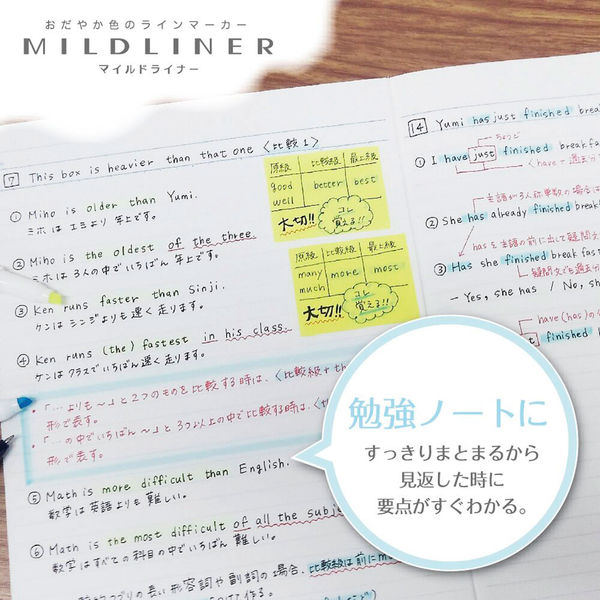 おだやか色のラインマーカー
MILDLINER
マイルドライナー
7 This box is heavier than that one 〈比較1〉
① Miho is older than Yumi.
ミホは ユミより 年上です。
② Miho is the oldest of the three.
ミホは 3人の中でいちばん 年上です。
③ Ken runs faster than Sinji.
ケンは シンジよりも 速く 走ります。
④ Ken runs (the) fastest in his class.
ケンは クラスでいちばん 速く 走ります。
・「…よりも～」と2つのものを比較する時は、〈比較級+th
形で表す。
・「…の中でいちばん～」と3つ以上の中で比較する時は、〈th
形で表す。
⑤ Math is more difficult than English.
数学は 英語よりも 難しい。
⑥ Math is the most difficult of all the subje
数学は すべての 科目の中で いちばん 難しい。
の長い 形容詞や 副詞の 場合、比較級は前にm
原級 比較級 最上級
good better best
well
大切!! コレ覚える!!
原級 比較級 最上級
many more most
much
大切!! コレ覚える!!
14 Yumi has just finished brea
ちょうど
① I have just finished breakfa
〈have+過去分
主語が3人称単数の場合は
② She has already finished break
hasを主語の前に出して疑問文
③ Has she finished break
疑問文も過去分
― Yes, she has / No, sh
have(has)の
finished
勉強ノートに
すっきりまとまるから
見返した時に
要点がすぐわかる。